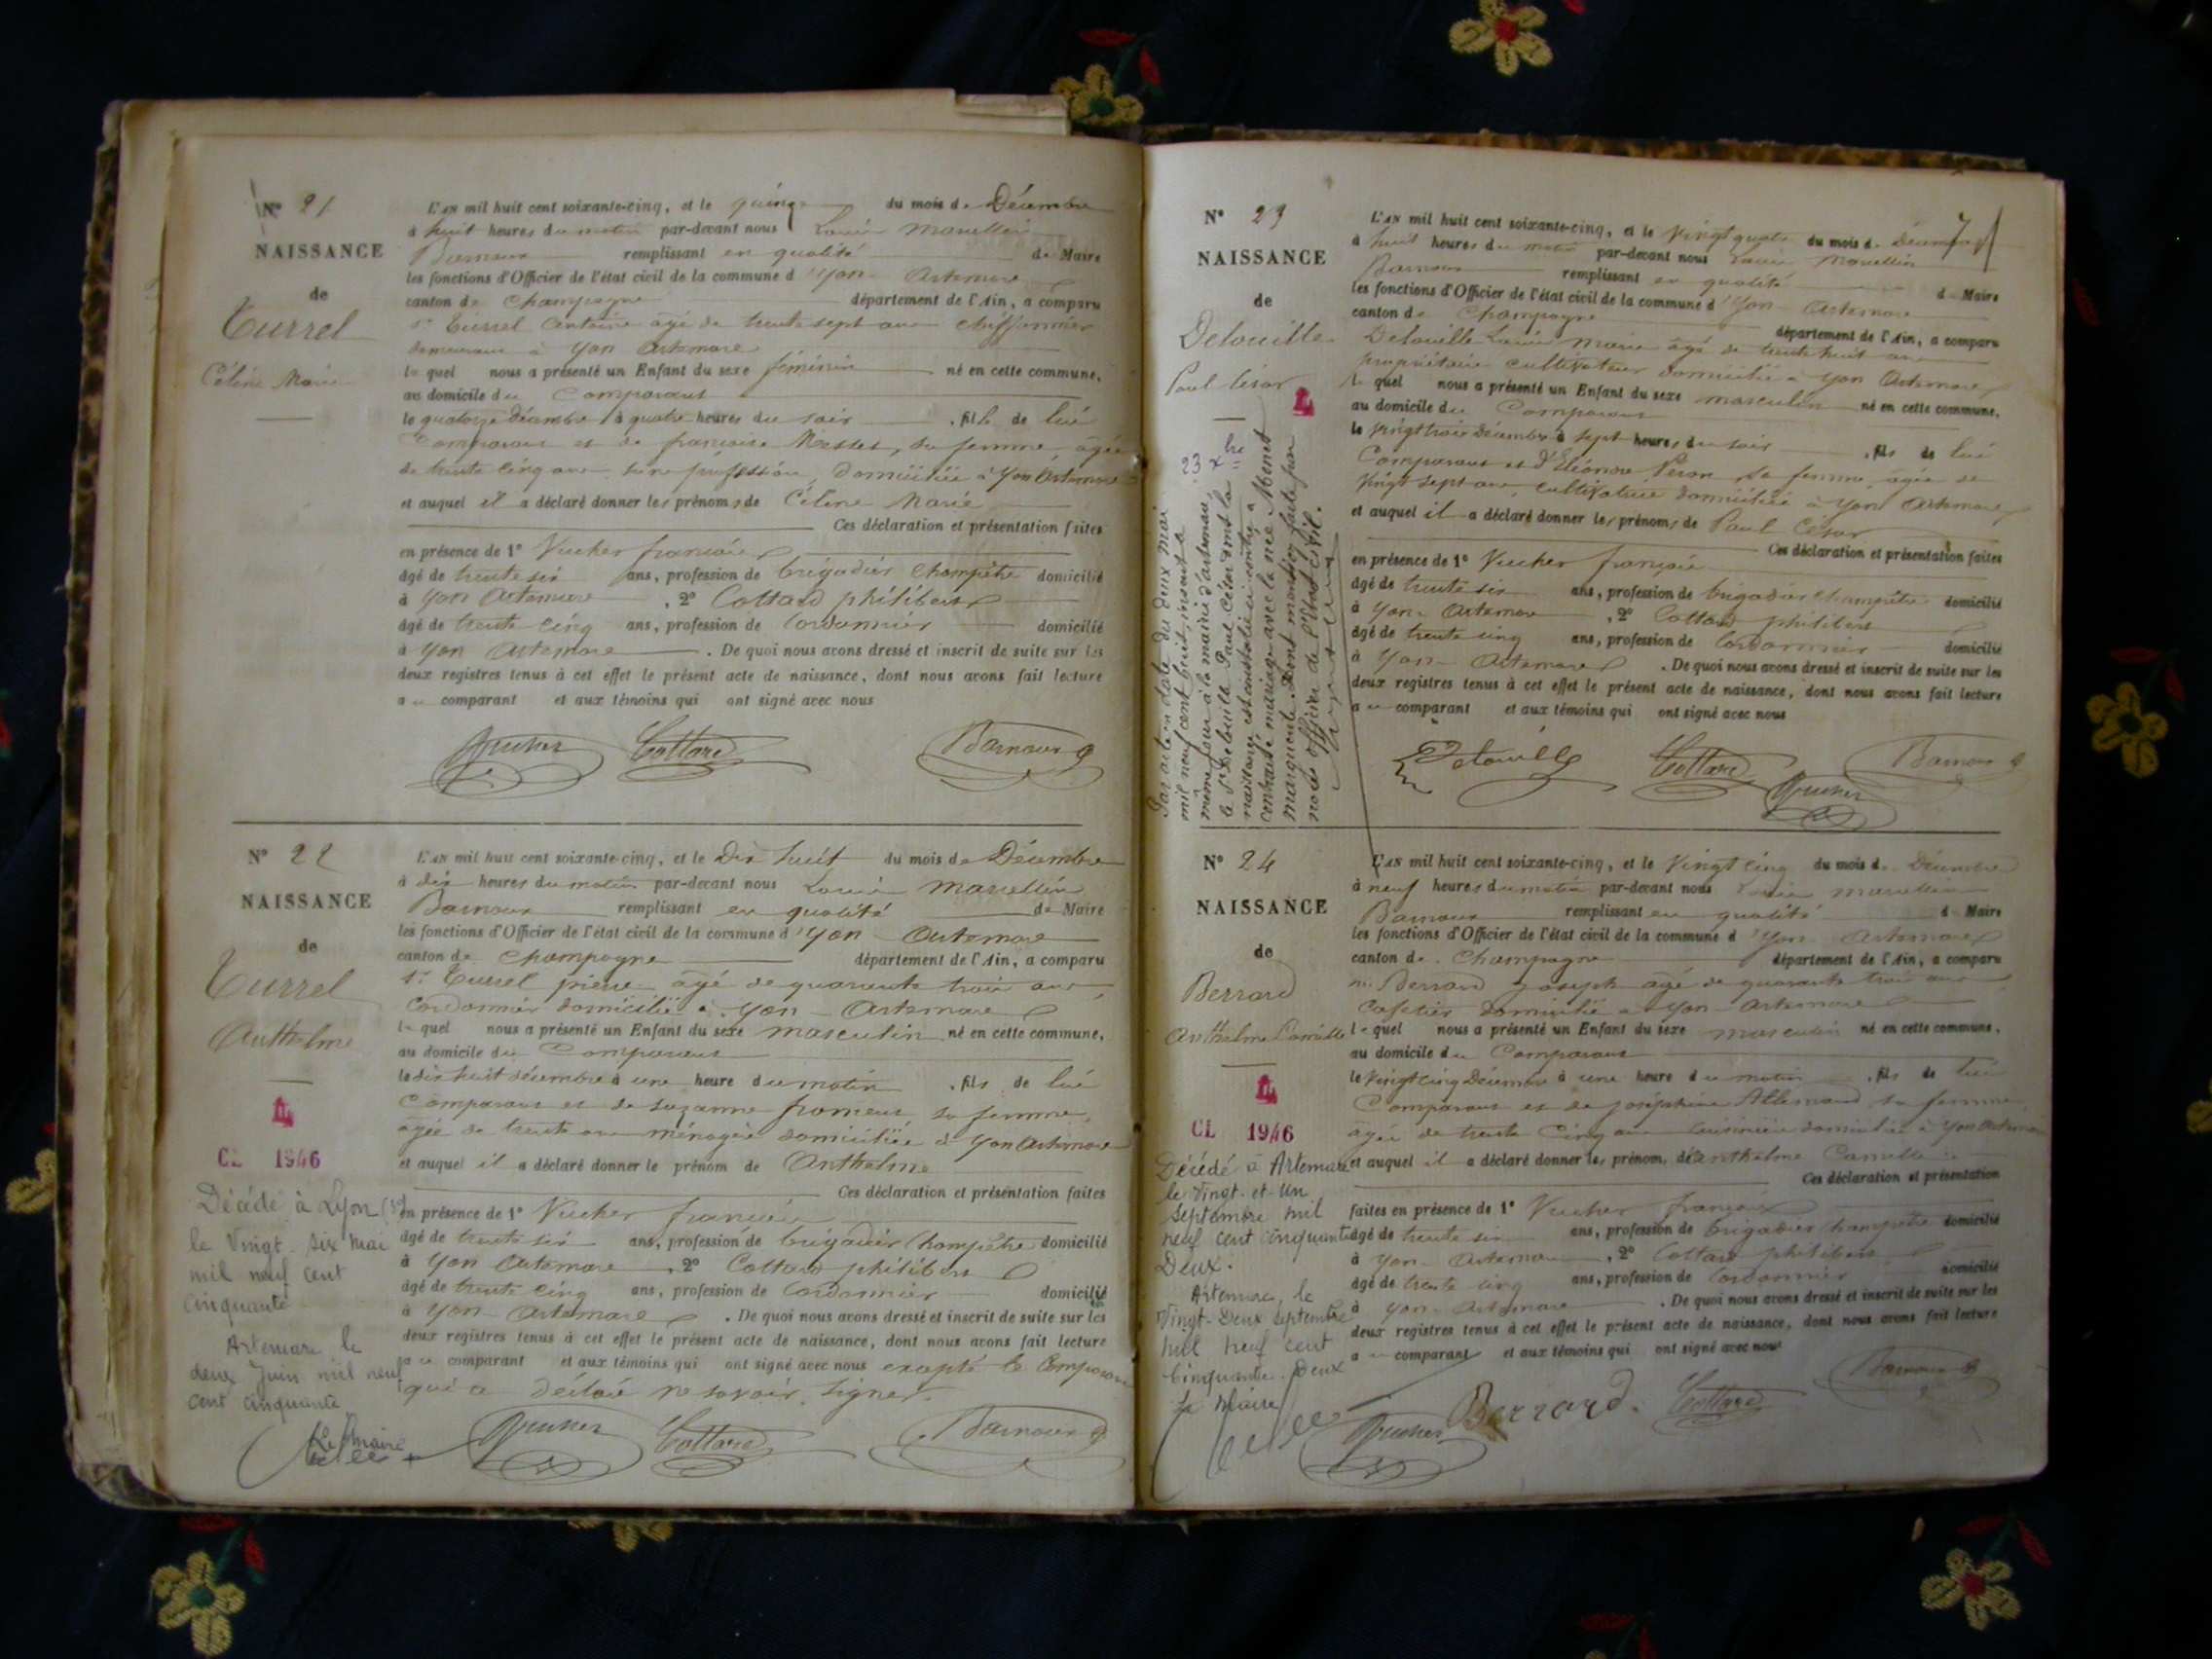 N° 21
NAISSANCE
de
Turrel
Céline Marie
L'AN mil huit cent soixante-cinq, et le quinze du mois de Décembre
à huit heures du matin par-devant nous Louis Marcellin
remplissant en qualité de Maire
les fonctions d'Officier de l'état civil de la commune d'Yon Artemare
canton de Champagne département de l'Ain, a comparu
sr Turrel Antoine âgé de trente sept ans chiffonnier
demeurant à Yon Artemare
lequel nous a présenté un Enfant du sexe féminin né en cette commune,
au domicile du Comparant
le quatorze décembre à quatre heures du soir , fille de lui
Comparant et de françoise sa femme, âgée
de trente cinq ans sans profession, domiciliée à Yon Artemare
et auquel il a déclaré donner les prénoms de Céline Marie
Ces déclaration et présentation faites
en présence de 1° Vucher françois
âgé de trente six ans, profession de brigadier champêtre domicilié
à Yon Artemare , 2° Cottard philibert
âgé de trente cinq ans, profession de Cordonnier domicilié
à Yon Artemare . De quoi nous avons dressé et inscrit de suite sur les
deux registres tenus à cet effet le présent acte de naissance, dont nous avons fait lecture
au comparant et aux témoins qui ont signé avec nous
Vucher Cottard
N° 22
NAISSANCE
de
Turrel
Anthelme
CL 1946
Décédé à Lyon
le Vingt-six mai
mil neuf cent
cinquante
Artemare le
deux Juin mil neuf
cent cinquante
Le Maire
L'AN mil huit cent soixante-cinq, et le Dix huit du mois de Décembre
à dix heures du matin par-devant nous Louis Marcellin
remplissant en qualité de Maire
les fonctions d'Officier de l'état civil de la commune d'Yon Artemare
canton de Champagne département de l'Ain, a comparu
sr Turrel pierre âgé de quarante trois ans
Cordonnier domicilié à Yon Artemare
lequel nous a présenté un Enfant du sexe masculin né en cette commune,
au domicile du Comparant
le dix huit décembre à une heure du matin , fils de lui
Comparant et de Suzanne froment sa femme,
âgée de trente ans ménagère domiciliée à Yon Artemare
et auquel il a déclaré donner le prénom de Anthelme
Ces déclaration et présentation faites
en présence de 1° Vucher françois
âgé de trente six ans, profession de brigadier Champêtre domicilié
à Yon Artemare , 2° Cottard philibert
âgé de trente cinq ans, profession de Cordonnier domicilié
à Yon Artemare . De quoi nous avons dressé et inscrit de suite sur les
deux registres tenus à cet effet le présent acte de naissance, dont nous avons fait lecture
au comparant et aux témoins qui ont signé avec nous excepté le Comparant
qui a déclaré ne savoir signer.
Vucher Cottard
N° 23
NAISSANCE
de
Detouille
Paul César
23 xbre
Par acte en date du deux mai
mil neuf cent
même jour à la mairie d'Artemare,
le Sr Paul César dont la
naissance est constatée ci-contre, a
contracté mariage avec la née
marquante. Dont mention faite par
nous officier de l'état civil.
L'AN mil huit cent soixante-cinq, et le Vingt quatre du mois de Décembre
à huit heures du matin par-devant nous Louis Marcellin
remplissant en qualité de Maire
les fonctions d'Officier de l'état civil de la commune d'Yon Artemare
canton de Champagne département de l'Ain, a comparu
Detouille Louis Marie âgé de trente huit ans
propriétaire cultivateur domicilié à Yon Artemare
lequel nous a présenté un Enfant du sexe masculin né en cette commune,
au domicile du Comparant
le Vingt trois décembre à sept heures du soir , fils de lui
Comparant et d'Eléonore sa femme, âgée de
Vingt sept ans, cultivatrice domiciliée à Yon Artemare
et auquel il a déclaré donner les prénoms de Paul César
Ces déclaration et présentation faites
en présence de 1° Vucher françois
âgé de trente six ans, profession de brigadier champêtre domicilié
à Yon Artemare , 2° Cottard philibert
âgé de trente cinq ans, profession de Cordonnier domicilié
à Yon Artemare . De quoi nous avons dressé et inscrit de suite sur les
deux registres tenus à cet effet le présent acte de naissance, dont nous avons fait lecture
au comparant et aux témoins qui ont signé avec nous
Detouille Cottard
Vucher
N° 24
NAISSANCE
de
Berrard
Anthelme Camille
CL 1946
Décédé à Artemare
le Vingt-et-Un
Septembre mil
neuf cent cinquante
Deux.
Artemare, le
Vingt-Deux Septembre
mil neuf cent
Cinquante-Deux
Le Maire
L'AN mil huit cent soixante-cinq, et le Vingt cinq du mois de Décembre
à neuf heures du matin par-devant nous Louis Marcellin
remplissant en qualité de Maire
les fonctions d'Officier de l'état civil de la commune d'Yon Artemare
canton de Champagne département de l'Ain, a comparu
Berrard Joseph âgé de quarante trois ans
Cafetier domicilié à Yon Artemare
lequel nous a présenté un Enfant du sexe masculin né en cette commune,
au domicile du Comparant
le Vingt cinq Décembre à une heure du matin , fils de lui
Comparant et de Joséphine Allemand sa femme
âgée de trente cinq ans cuisinière domiciliée à Yon Artemare
et auquel il a déclaré donner les prénoms de Anthelme Camille
Ces déclaration et présentation
faites en présence de 1° Vucher françois
âgé de trente six ans, profession de brigadier champêtre domicilié
à Yon Artemare , 2° Cottard philibert
âgé de trente cinq ans, profession de Cordonnier domicilié
à Yon Artemare . De quoi nous avons dressé et inscrit de suite sur les
deux registres tenus à cet effet le présent acte de naissance, dont nous avons fait lecture
au comparant et aux témoins qui ont signé avec nous
Vucher Berrard. Cottard